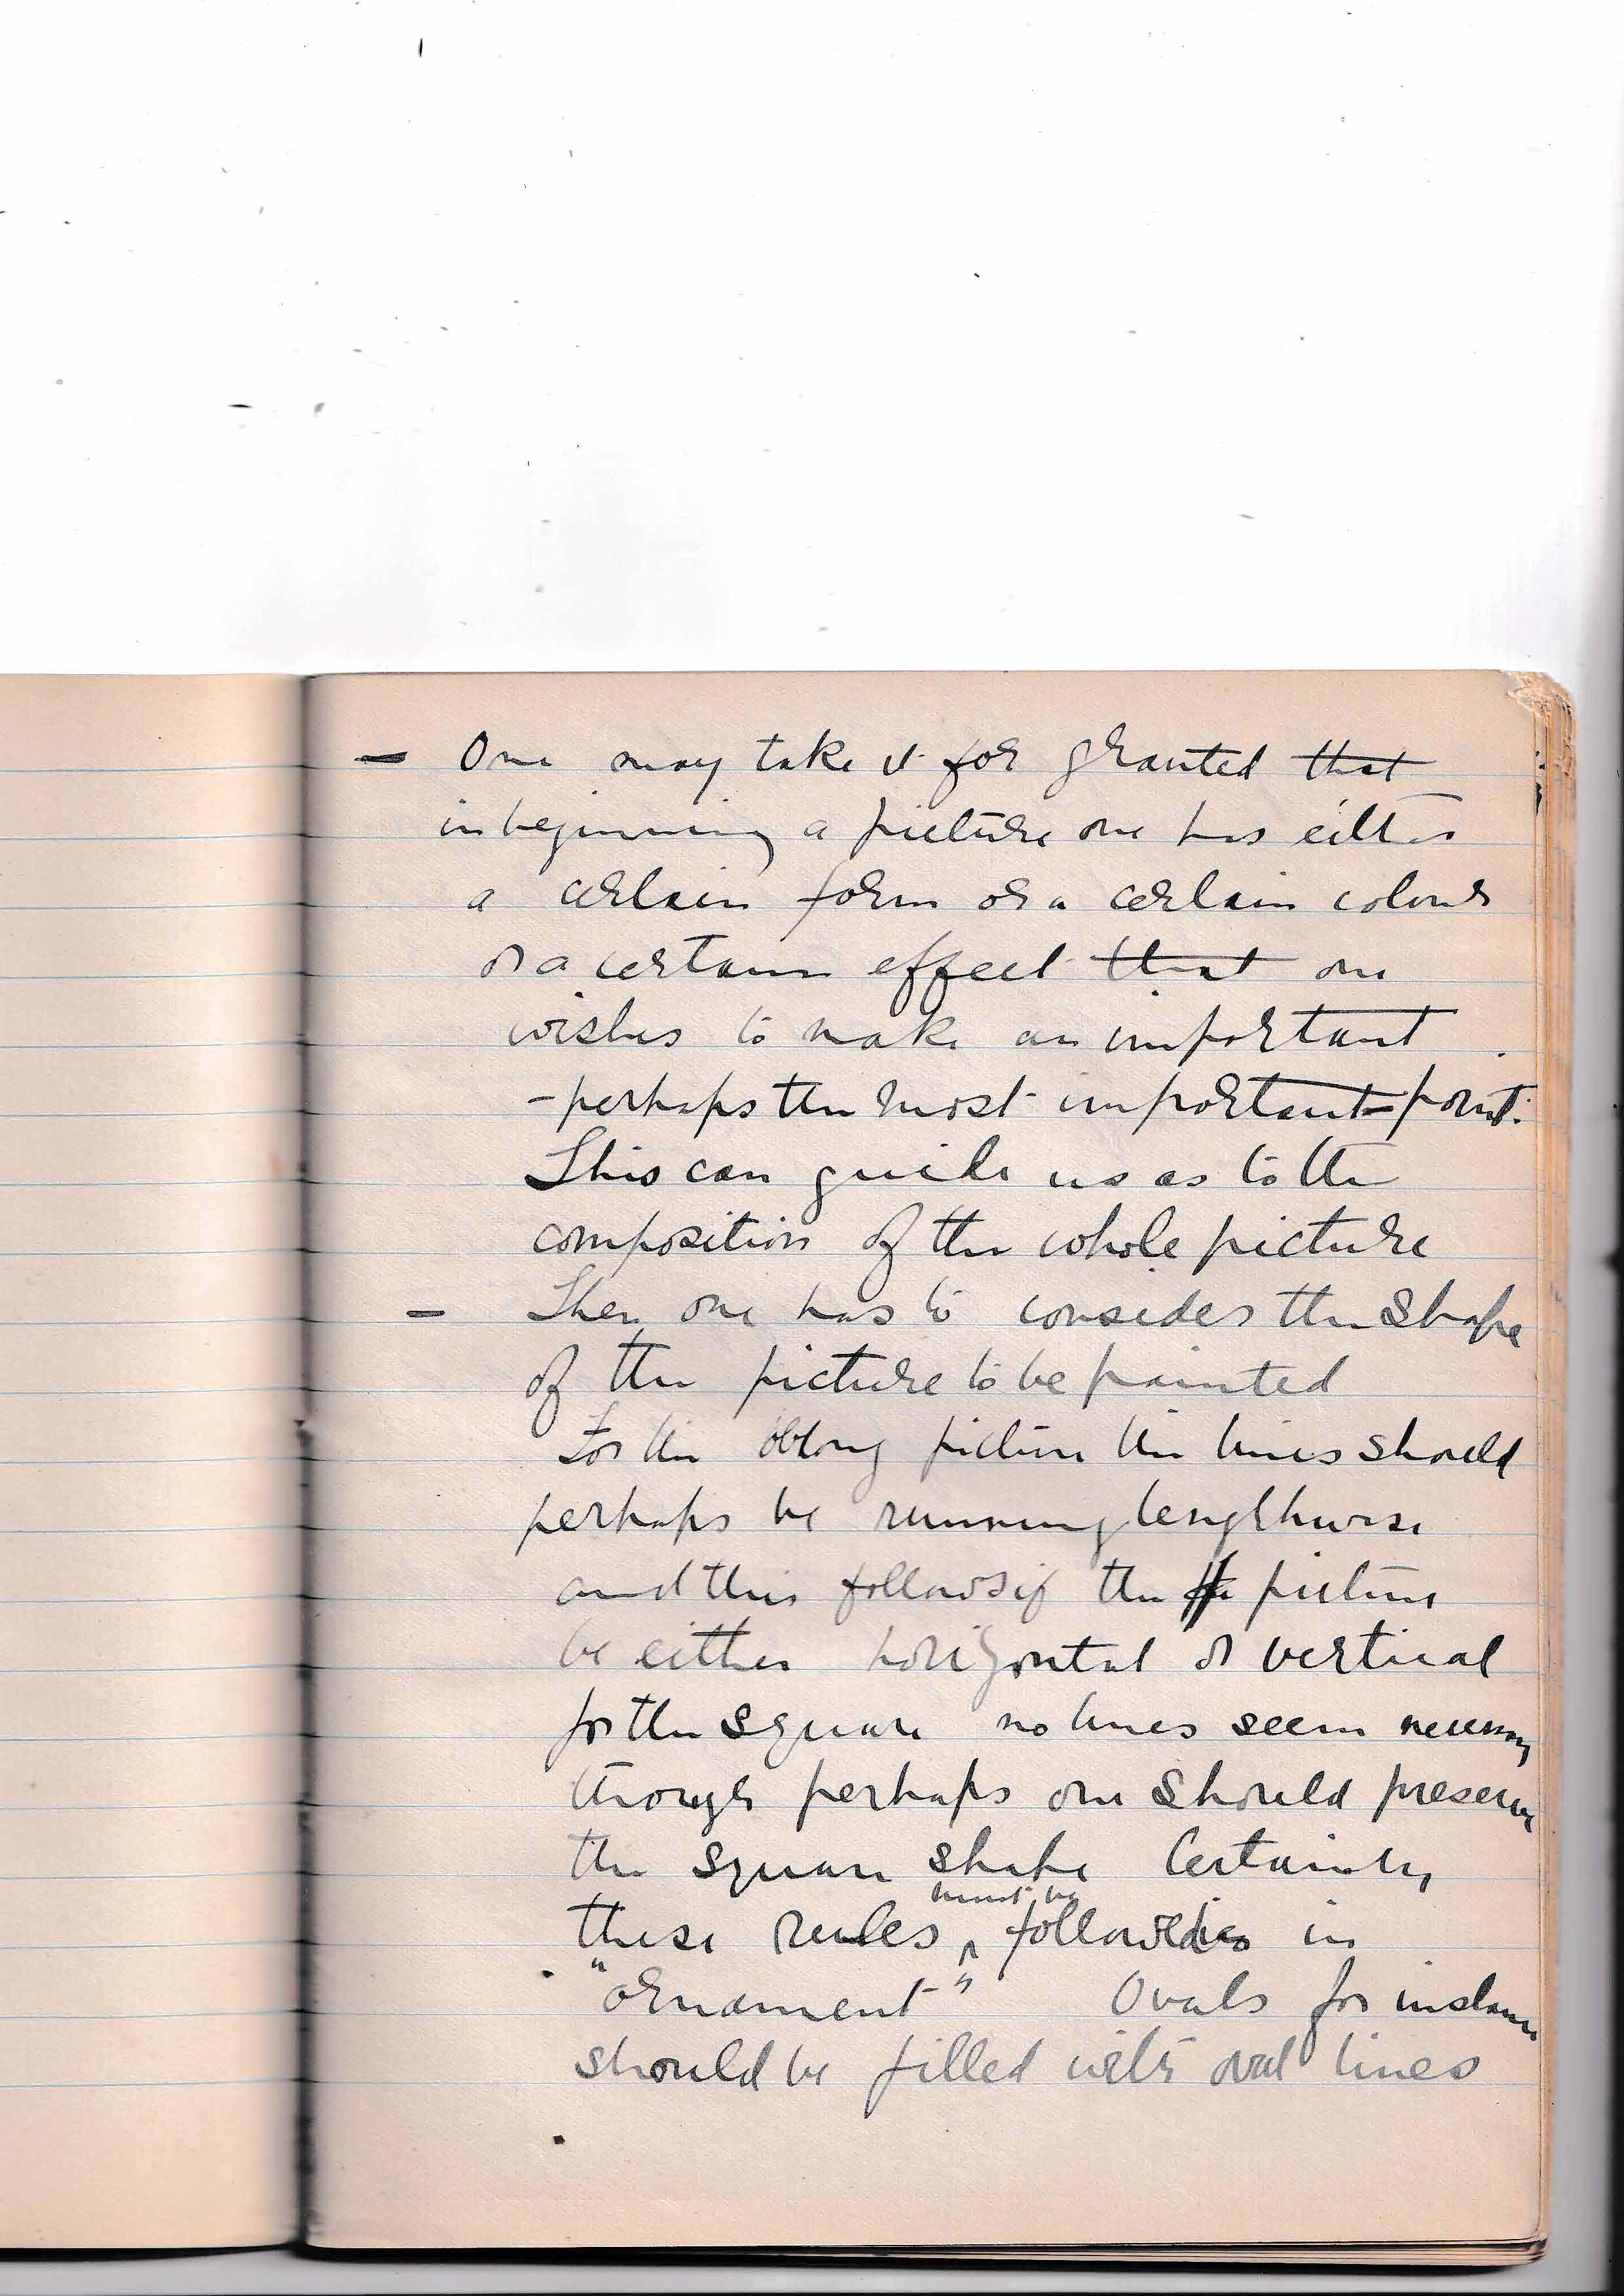 - One may take it for granted that
in beginning a picture one has either
a certain form or a certain colour
or a certain effect that one
wishes to make an important
- perhaps the most important point.
This can guide us as to the
composition of the whole picture
- Then one has to consider the shape
of the picture to be painted
For the oblong picture the lines should
perhaps be running lengthwise
and this follows if the picture
be either horizontal or vertical
for the square no lines seem necessary
though perhaps one should preserve
the square shape Certainly
must be
these rules ‸ followed in
"ornament" Ovals for instance
should be filled with oval lines